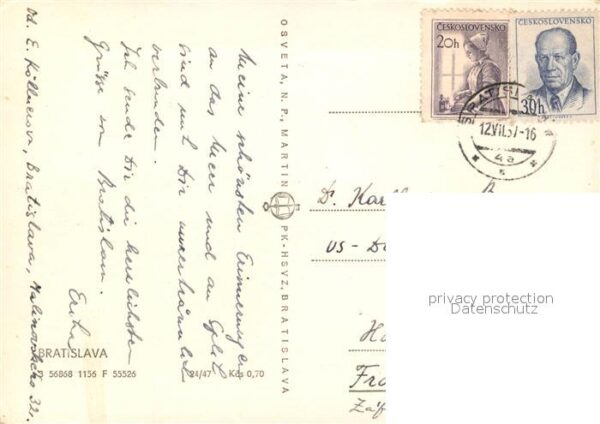 Meine schönsten Erinnerungen
an das Meer und an Split
sind mit Dir unzertrännlich
verbunden.
Ich sende Dir die herzlichsten
Grüsse von Bratislava.
Erika
Od. E. Köllnerova, Bratislava, Malinovského 32.
OSVETA, N. P., MARTIN
PK-HSVZ, BRATISLAVA
BRATISLAVA
56868 1156 F 55526
24/47 Kčs 0,70
ČESKOSLOVENSKO
20h
ČESKOSLOVENSKO
30h
BRATISLAVA
12.VII.57-16
4a
Dr. Karl
US-
privacy protection
Datenschutz